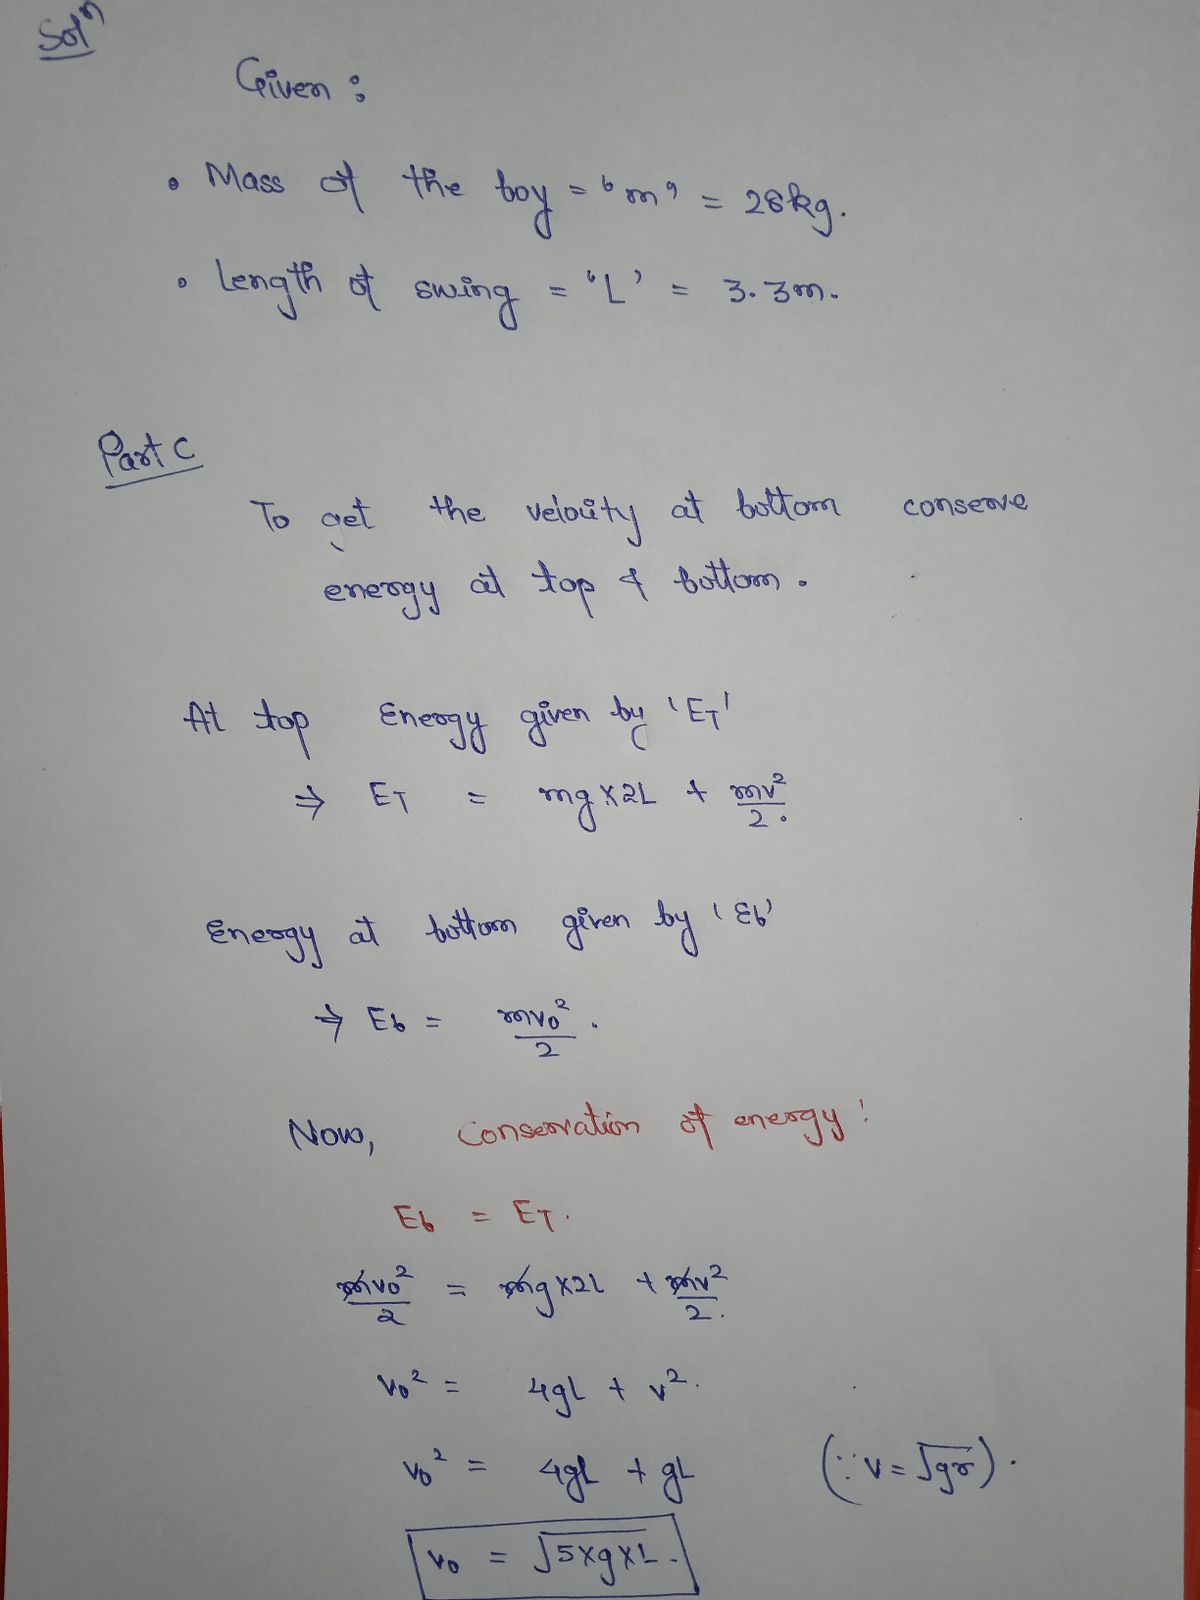 Solⁿ
Given :
• Mass of the boy = 'm' = 28kg.
• Length of swing = 'L' = 3.3m.
Part C
To get the velocity at bottom conserve
energy at top & bottom.
At top Energy given by 'E_T'
⇒ E_T = mg×2L + mv²/2.
Energy at bottom given by 'Eb'
⇒ Eb = mv₀²/2.
Now, Conservation of energy!
Eb = E_T.
mv₀²/2 = mg×2L + mv²/2.
v₀² = 4gL + v².
v₀² = 4gL + gL (∵ v = √gr).
v₀ = √5×g×L.